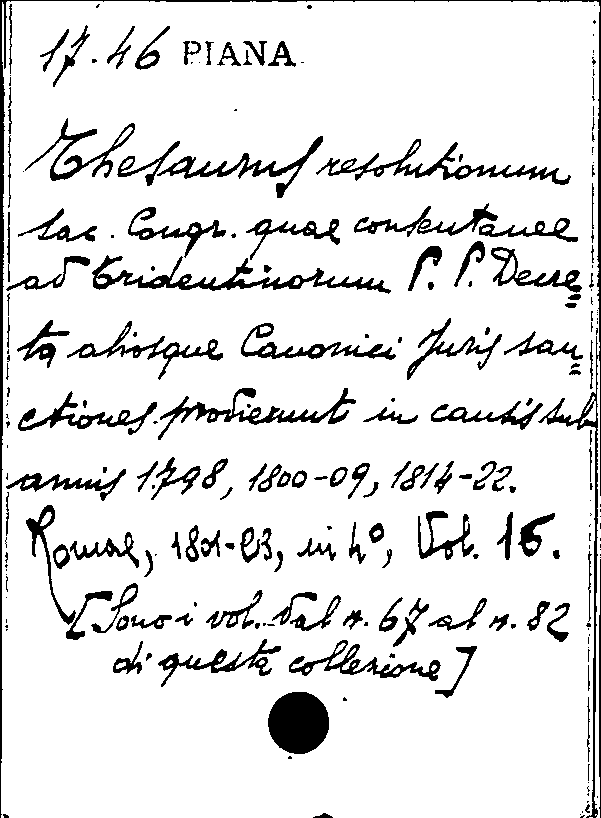 17.46 PIANA
Thesaurus resolutionum
Sac. Congr. quae consentanee
ad Tridentinorum P. P. Decre=
ta aliosque Canonici Juris san=
ctiones prodierunt in causis sub
annis 1798, 1800-09, 1814-22.
Romae, 1801-23, in 4º, Vol. 16.
[Sono i vol. dal n. 67 al n. 82
di questa collezione]